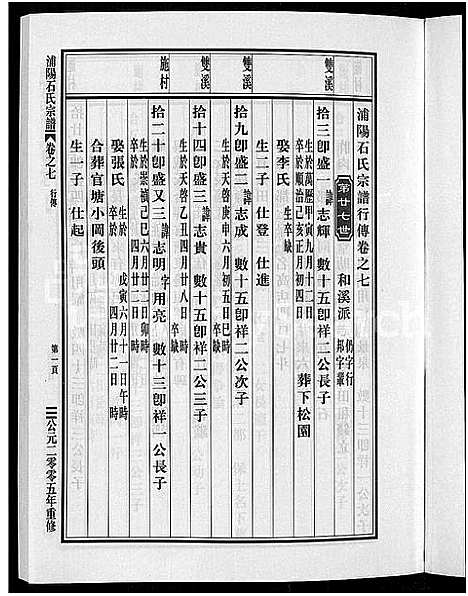 浦陽石氏宗譜行傳卷之七
第廿七世 和溪派 仂字行 邦字叢
雙溪
拾三卽盛一 諱志輝 數十五卽祥二公長子
生於萬歷甲寅九月十二日 卒於順治己亥正月初四日 葬下松園
娶李氏 生卒缺
生二子 仕登 仕進
雙溪
拾九卽盛二 諱志成 數十五卽祥二公次子
生於天啓庚申六月初五日巳時 卒缺
雙溪
拾十四卽盛三 諱志貴 數十五卽祥二公三子
生於天啓乙丑四月廿八日 卒缺
施村
拾二十卽盛又三 諱志明 字用亮 數十三卽祥一公長子
生於崇禎己巳六月廿二日卯時 卒於 四月二十二日 時
娶張氏 生於 戊寅六月十一日午時 卒於 四月廿二日 時
合葬官塘小岡後頭
生一子 仕起
浦陽石氏宗譜 卷之七 行傳 第一頁 公元二零零五年重修